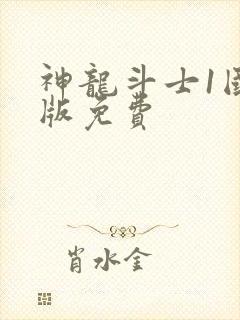 神龍斗士1国
版免費
肖水金